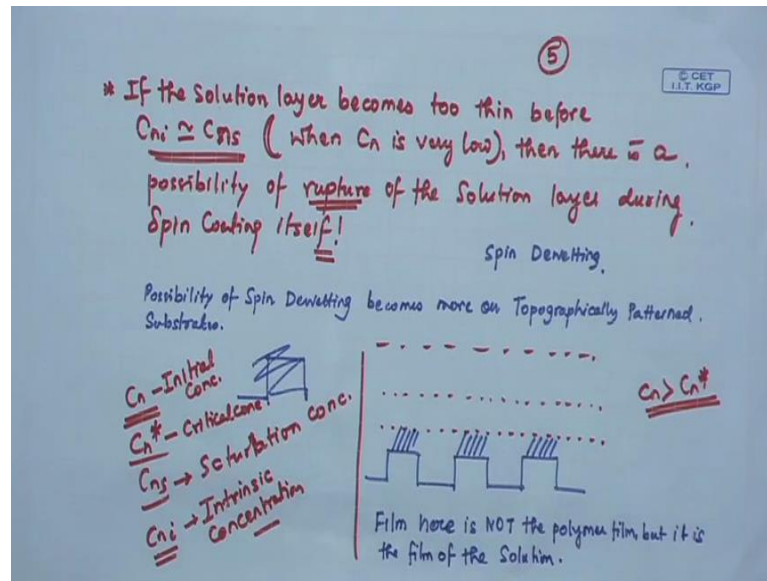 5
© CET
I.I.T. KGP
* If the solution layer becomes too thin before
Cni ≃ Cns (when Cn is very low), then there is a
possibility of rupture of the solution layer during
Spin Coating itself!
Spin Dewetting.
Possibility of Spin Dewetting becomes more on Topographically Patterned
Substrates.
Cn - Initial
Conc.
Cn* - Critical conc.
Cns → Saturation conc.
Cni → Intrinsic
Concentration
Cn > Cn*
Film here is NOT the polymer film, but it is
the film of the Solution.